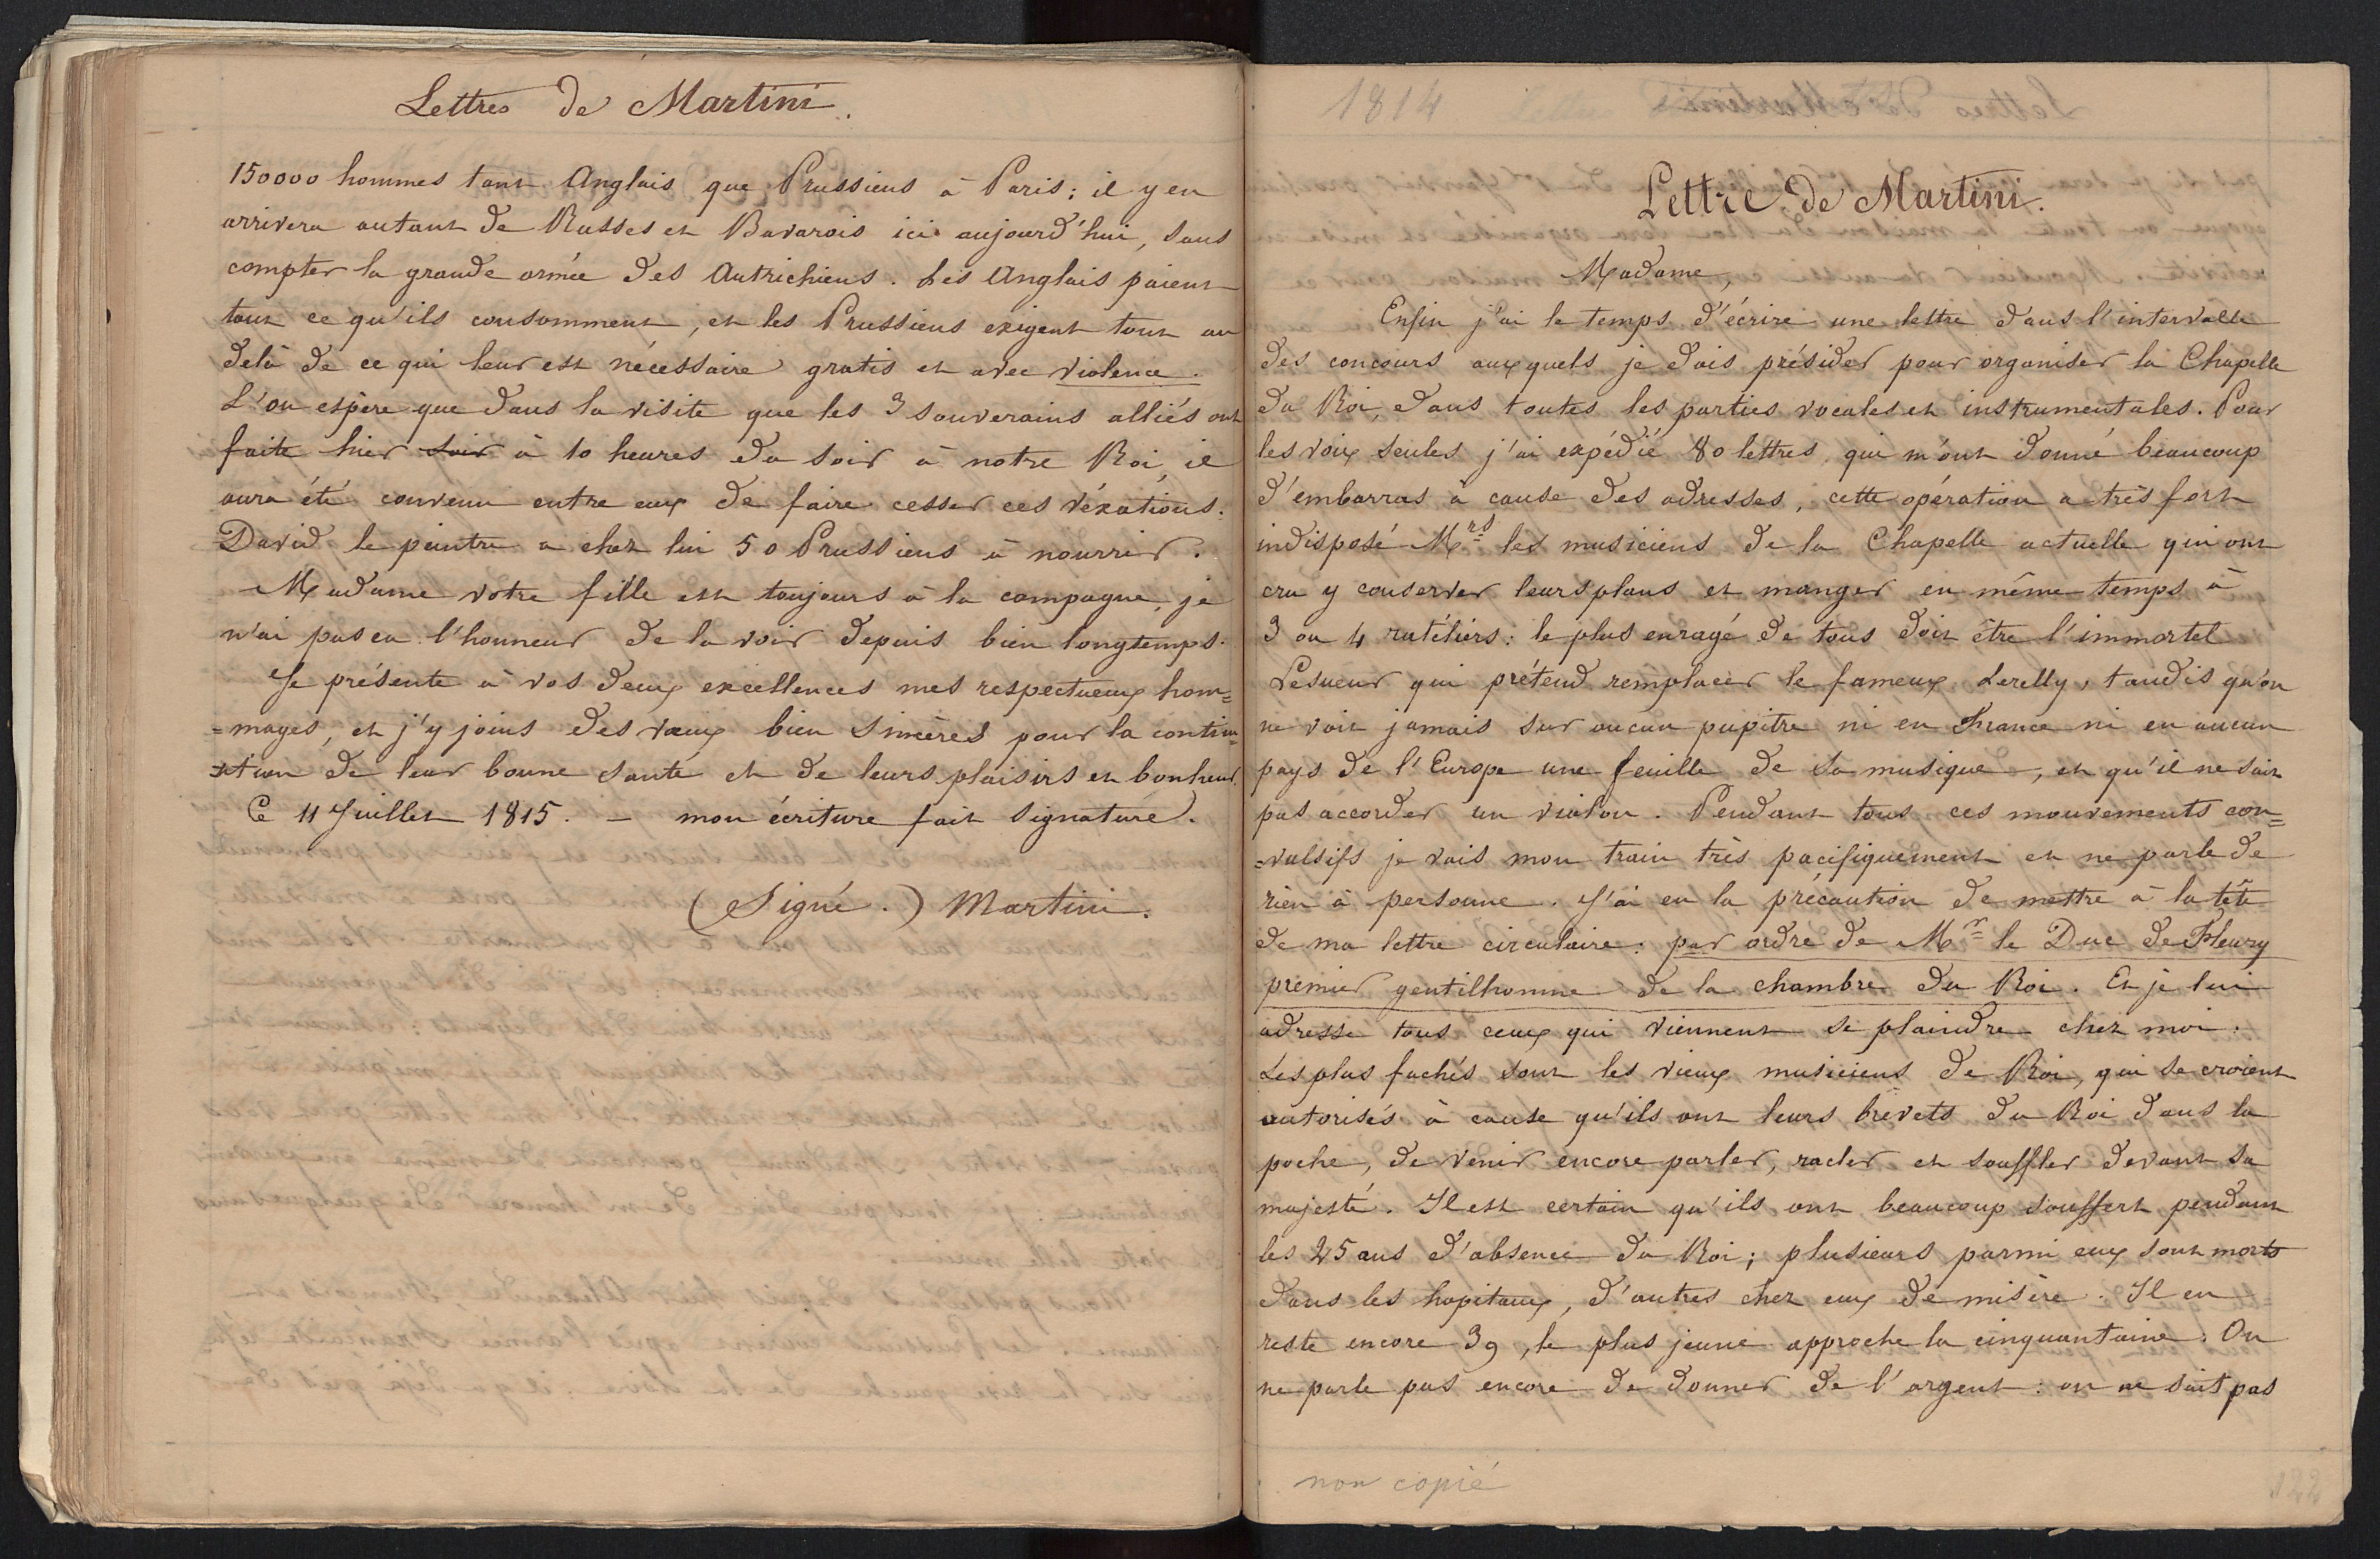 Lettres de Martini.
150000 hommes tant Anglais que Prussiens à Paris : il y en
arrivera autant de Russes et Bavarois ici aujourd'hui, sans
compter la grande armée des Autrichiens. Les Anglais paient
tout ce qu'ils consomment, et les Prussiens exigent tout au
delà de ce qui leur est nécessaire gratis et avec violence.
L'on espère que dans la visite que les 3 souverains alliés ont
faite hier soir à 10 heures du soir à notre Roi, il
aura été convenu entre eux de faire cesser ces véxations.
David le peintre a chez lui 50 Prussiens à nourrir.
Madame votre fille est toujours à la campagne, je
n'ai pas eu l'honneur de la voir depuis bien longtemps.
Je présente à vos deux excellences mes respectueux hom=
=mages, et j'y joins des vœux bien sincères pour la continu=
ation de leur bonne santé et de leurs plaisirs et bonheur.
Ce 11 Juillet 1815. — mon écriture fait signature.
(Signé.) Martini.
1814
Lettre de Martini.
Madame,
Enfin j'ai le temps d'écrire une lettre dans l'intervalle
des concours auxquels je dois présider pour organiser la Chapelle
du Roi, dans toutes les parties vocales et instrumentales. Pour
les voix seules j'ai expédié 80 lettres, qui m'ont donné beaucoup
d'embarras à cause des adresses, cette opération a très fort
indisposé Mrs les musiciens de la Chapelle actuelle qui ont
cru y conserver leurs plans et manger en même temps à
3 ou 4 ratéliers : le plus enragé de tous doit être l'immortel
Lesueur qui prétend remplacer le fameux Lerelly, tandis qu'on
ne voit jamais sur aucun pupitre ni en France ni en aucun
pays de l'Europe une feuille de sa musique, et qu'il ne sait
pas accorder un violon. Pendant tous ces mouvements con=
=vulsifs je vais mon train très pacifiquement et ne parle de
rien à personne. J'ai eu la précaution de mettre à la tête
de ma lettre circulaire : par ordre de Mr le Duc de Fleury
premier gentilhomme de la chambre du Roi. Et je lui
adresse tous ceux qui viennent se plaindre chez moi.
Les plus fachés sont les vieux musiciens de Roi, qui se croient
autorisés à cause qu'ils ont leurs brevets du Roi dans la
poche, de venir encore parler, racler et souffler devant sa
majesté. Il est certain qu'ils ont beaucoup souffert pendant
les 25 ans d'absence du Roi ; plusieurs parmi eux sont morts
dans les hopitaux, d'autres chez eux de misère. Il en
reste encore 39, le plus jeune approche la cinquantaine. On
ne parle pas encore de donner de l'argent : on ne sait pas
non copié
122